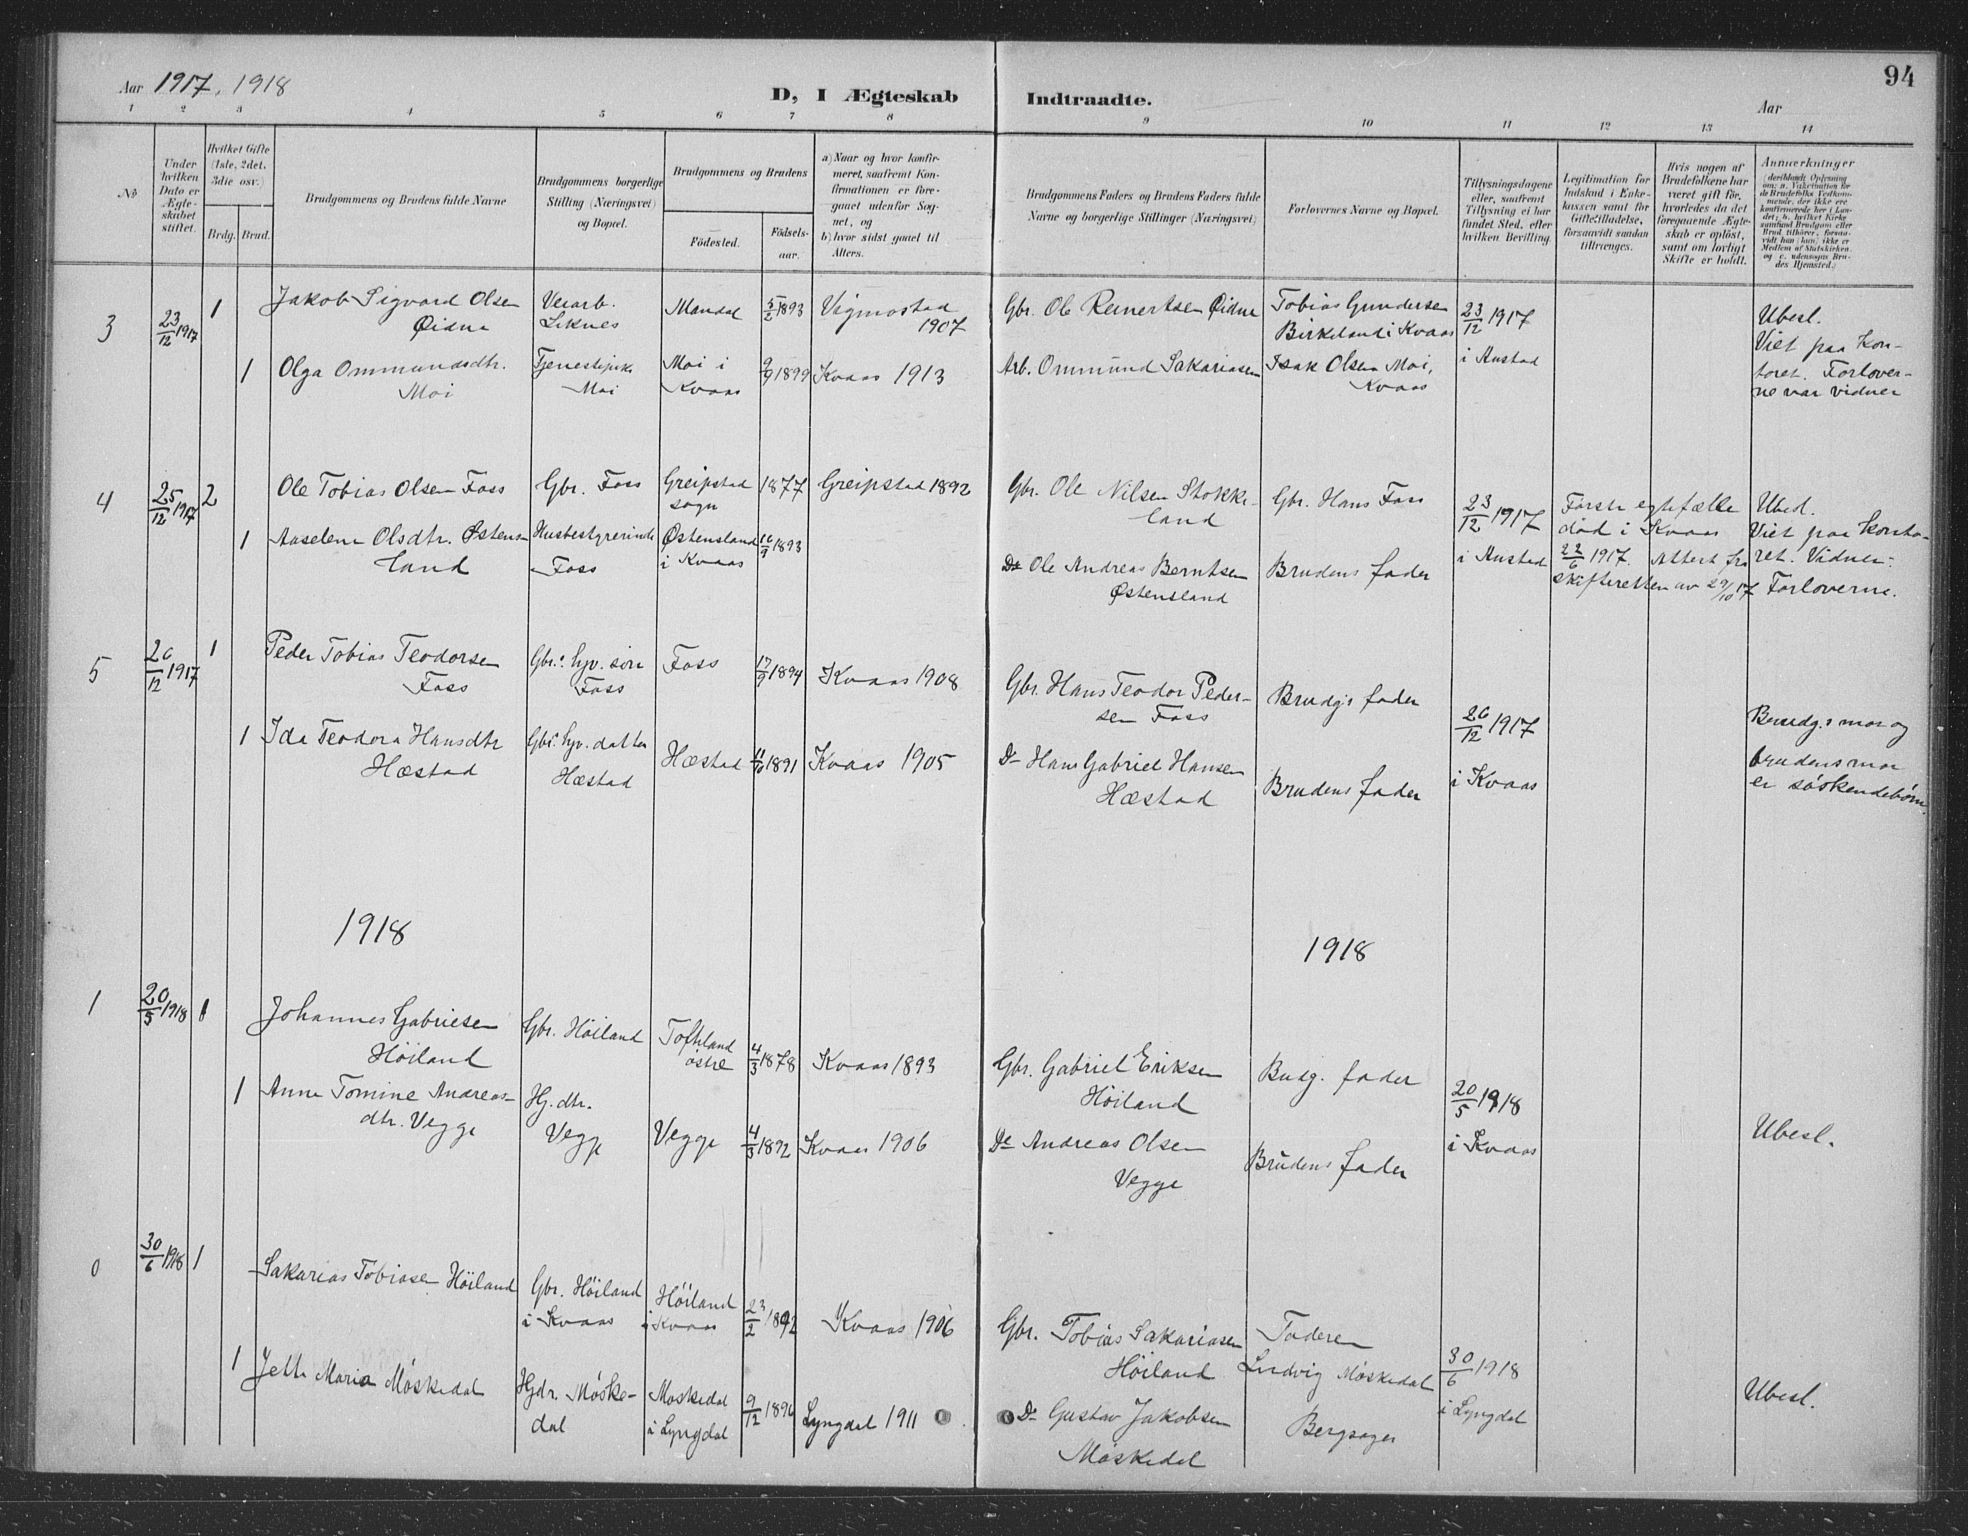 94
Aar 1917, 1918
D, I Ægteskab Indtraadte.
Aar
1 2 3 4 5 6 7 8 9 10 11 12 13 14
No
Under hvilken Dato er Ægteskabet stiftet.
Hvilket Gifte (1ste, 2det, 3die osv.)
Brdg. Brud.
Brudgommens og Brudens fulde Navne
Brudgommens borgerlige Stilling (Næringsvei) og Bopæl.
Brudgommens og Brudens
Fødested.
Fødselsaar.
a) Naar og hvor konfirmeret, saafremt Konfirmationen er foregaaet udenfor Sognet, og
b) hvor sidst gaaet til Alters.
Brudgommens Faders og Brudens Faders fulde Navne og borgerlige Stillinger (Næringsvei)
Forlovernes Navne og Bopæl.
Tillysningsdagene eller, saafremt Tillysning ei har fundet Sted, efter hvilken Bevilling.
Legitimation for Indskud i Enkekassen samt for Giftetilladelse, forsaavidt saadan tiltrænges.
Hvis nogen af Brudefolkene har været gift før, hvorledes da det foregaaende Ægteskab er opløst, samt om lovligt Skifte er holdt.
Anmærkninger (deriblandt Oplysning om: a. Vakcination for de Brudefolks Vedkommende, der ikke ere konfirmerede her i Landet; b. hvilket Kirkesamfund Brudgom eller Brud tilhører, forsaavidt han (hun) ikke er Medlem af Statskirken, og c. udensogns Brudes Hjemsted.)
3 23/12 1917 1 Jakob Sigvard Olsen Øidne
Verarb. Leknes
Mandal 5/2 1893
Vigmostad 1907
Gbr. Ole Reinertsen Øidne
Tobias Gundersen Birkeland i Kvaas
23/12 1917 i Austad
Ubesl. Viet paa Kontoret. Forloverne var vidner
1 Olga Ommundsdtr. Moi
Tjenestepike Moi
Moi i Kvaas 9/9 1899
Kvaas 1913
Arb. Ommund Sakariasen
Isak Olsen Moi, Kvaas
4 25/12 1917 2 Ole Tobias Olsen Foss
Gbr. Foss
Greipstad sogn 1877
Greipstad 1892
Gbr. Ole Nilsen Stokkeland
Gbr. Hans Foss
23/12 1917 i Austad
Første egtefælle død i Kvaas 22/6 1917. Attest fra skifteretten av 29/10 17
Ubesl. Viet paa kontoret. Vidner: Forloverne.
1 Aaselene Olsdtr. Østensland
Husbestyrerinde Foss
Østensland i Kvaas 16/9 1893
Do Ole Andreas Berntsen Østensland
Brudens fader
5 26/12 1917 1 Peder Tobias Teodorsen Foss
Gbr.s hjv. søn Foss
Foss 17/9 1894
Kvaas 1908
Gbr. Hans Teodor Pedersen Foss
Brudg.s fader
26/12 1917 i Kvaas
Brudg.s mor og brudens mor er søskendebørn.
1 Ida Teodora Hansdtr Hæstad
Gbr.s hjv. datter Hæstad
Hæstad 11/10 1891
Kvaas 1905
Do Hans Gabriel Hansen Hæstad
Brudens fader
1918 1918
1 20/5 1918 1 Johannes Gabrielsen Høiland
Gbr. Høiland
Toftland østre 4/3 1878
Kvaas 1893
Gbr. Gabriel Eriksen Høiland
Budg. fader
20/5 1918 i Kvaas
Ubesl.
1 Anne Tomine Andreasdtr. Vegge
Hj. dtr. Vegge
Vegge 4/3 1892
Kvaas 1906
Do Andreas Olsen Vegge
Brudens fader
0 30/6 1918 1 Sakarias Tobiasen Høiland
Gbr. Høiland i Kvaas
Høiland i Kvaas 23/2 1892
Kvaas 1906
Gbr. Tobias Sakariasen Høiland
Faderen
30/6 1918 i Lyngdal
Ubesl.
1 Jette Maria Møskedal
Hjdr. Møskedal
Møskedal i Lyngdal 9/12 1896
Lyngdal 1911
Do Gustav Jakobsen Møskedal
Ludvig Møskedal Bergsager